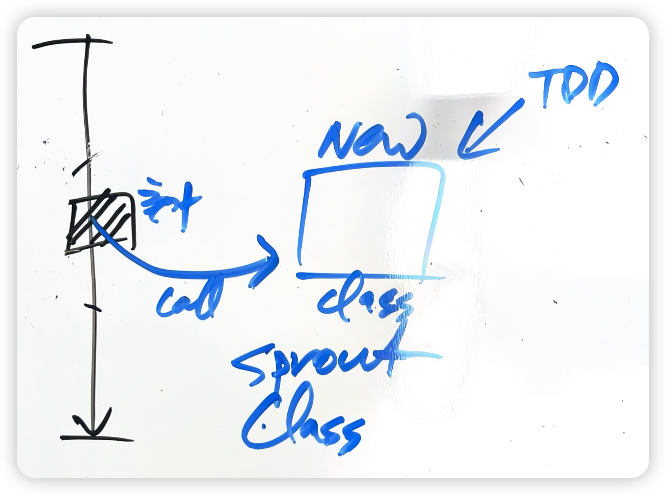 TDD
New
추가
call
class
Sprout
Class